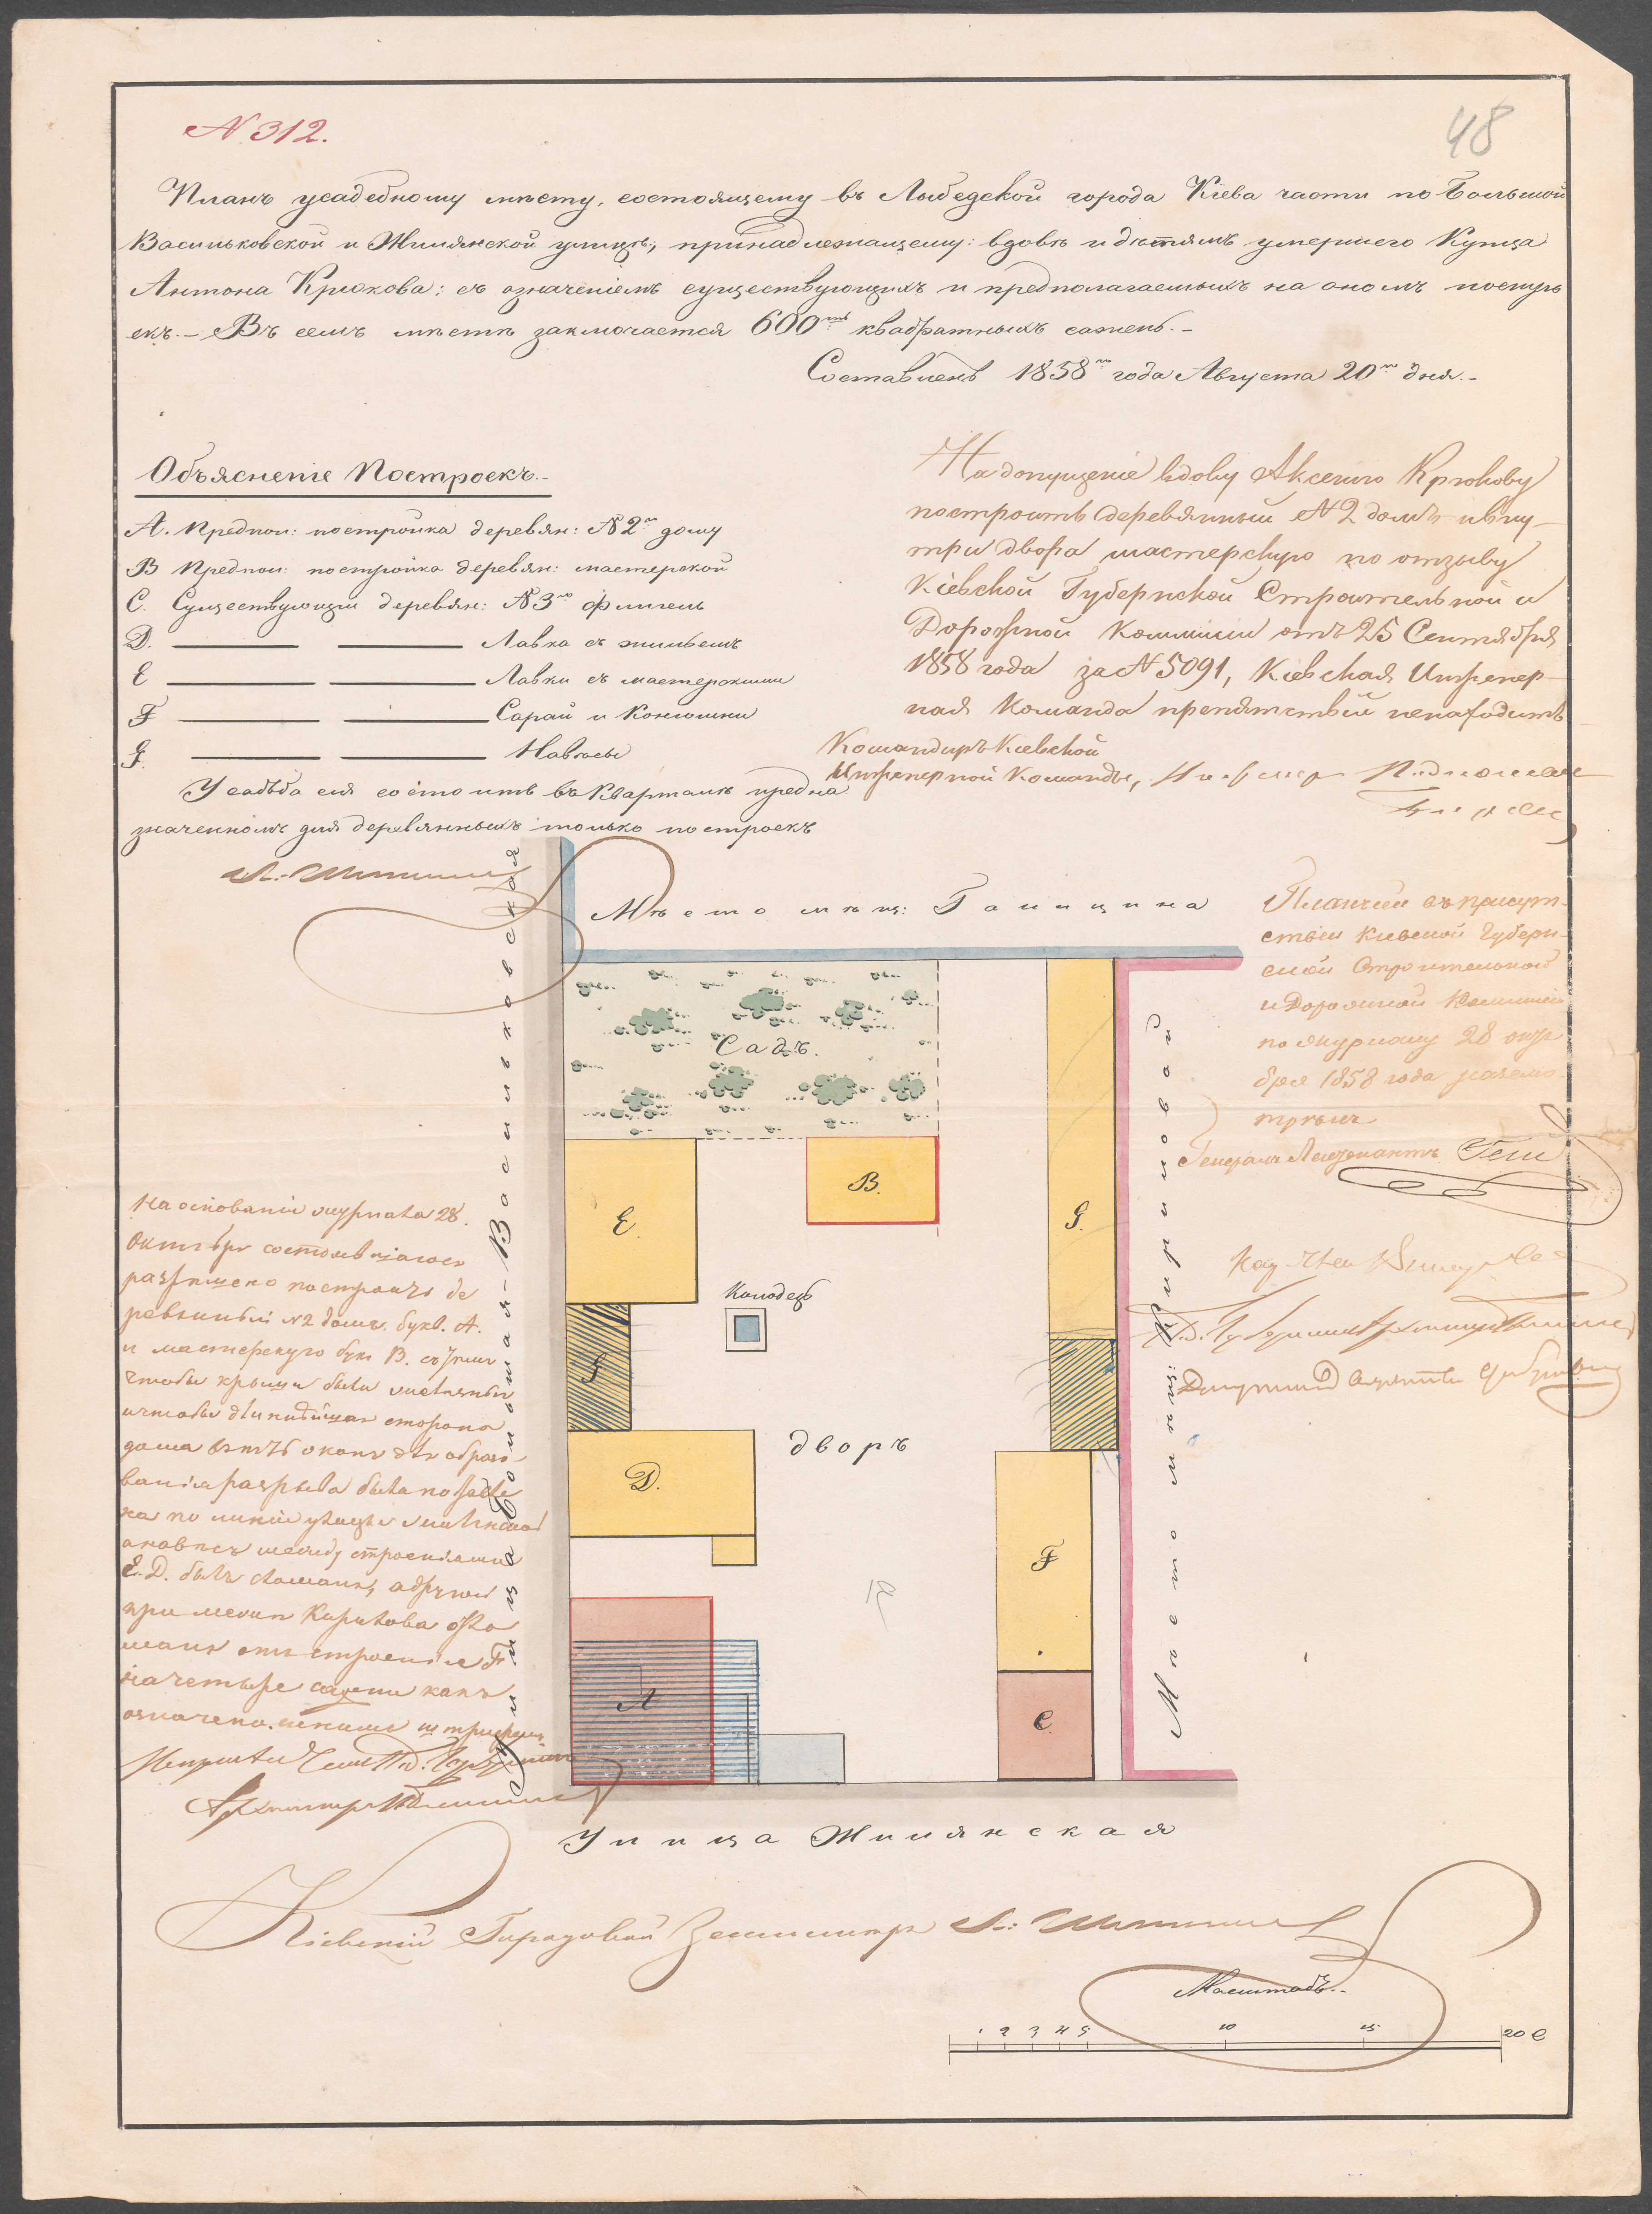 N 312.
48
Планъ усадебному мѣсту, состоящему въ Лыбедской города Кіева части по Большой
Васильковской и Жилянской улицѣ, принадлежащему: вдовѣ и дѣтямъ умершего Купца
Антона Крюкова; съ означеніемъ существующихъ и предполагаемыхъ на ономъ построй
екъ. – Въ семъ мѣстѣ заключается 600тъ квадратныхъ сажень. –
Составленъ 1858го года Августа 20го дня. –
Объясненіе Построекъ. –
А. Предпол: постройка деревян: N 2го дому
В Предпол: постройка деревян: мастерской
С. Существующій деревян: N 3го флигель
D. Лавка съ жильемъ
E Лавки съ мастерскими
F Сарай и Конюшни
G. Навѣсы
Усадьба сія состоитъ въ Кварталѣ предна
значенномъ для деревянныхъ только построекъ
На допущеніе вдову Аксенію Крюкову
построить деревянный N 2 домъ и вну-
три двора мастерскую по отзыву
Кіевской Губернской Строительной и
Дорожной Коммисіи отъ 25 Сентября
1858 года за N 5091, Кіевская Инженер-
ная Команда препятствій ненаходитъ
Командиръ Кіевской
Инженерной Команды, Инженеръ
Мѣсто мѣщ: Галицина
Планъ сей въ присут-
ствіи Кіевской Губерн-
ской Строительной
и Дорожной Коммисіи
по журналу 28 октя
бря 1858 года разсмо-
трѣнъ
Генералъ Лейтенантъ
Садъ.
E.
B.
G.
Колодезь
G
дворъ
D.
F
12
A
C
Улица Большая-Васильковская
Мѣсто мѣщ: Кирилова
На основаніи журнала 28
Октября состоявшагося
разрѣшено построить де
ревянный N 2 домъ. букв. А.
и мастерскую букв В. съ тѣмъ
чтобы крыши были
и чтобы длиннѣйшая сторона
дома
была
по линіи улицы Жилянской
а навѣсъ между строеніями
E. D. былъ сломанъ, а другой
при межѣ Кирилова
отъ строенія F
на четыре сажени какъ
означено синимъ штрихомъ
Улица Жилянская
Кіевскій Городовой Землемѣръ
Масштабъ. –
1 2 3 4 5 10 15 20 С